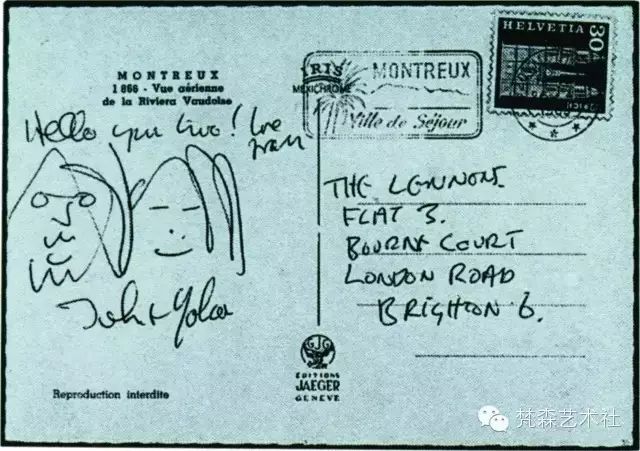 MONTREUX
1 866 - Vue aérienne
de la Riviera Vaudoise
Hello you two! love
from
John + Yoko
Reproduction interdite
IRIS
MEXICHROME
MONTREUX
Ville de Séjour
HELVETIA
30
THE LENNONS.
FLAT 3.
BOURNE COURT
LONDON ROAD
BRIGHTON 6.
GJG
EDITIONS
JAEGER
GENEVE
梵森艺术社